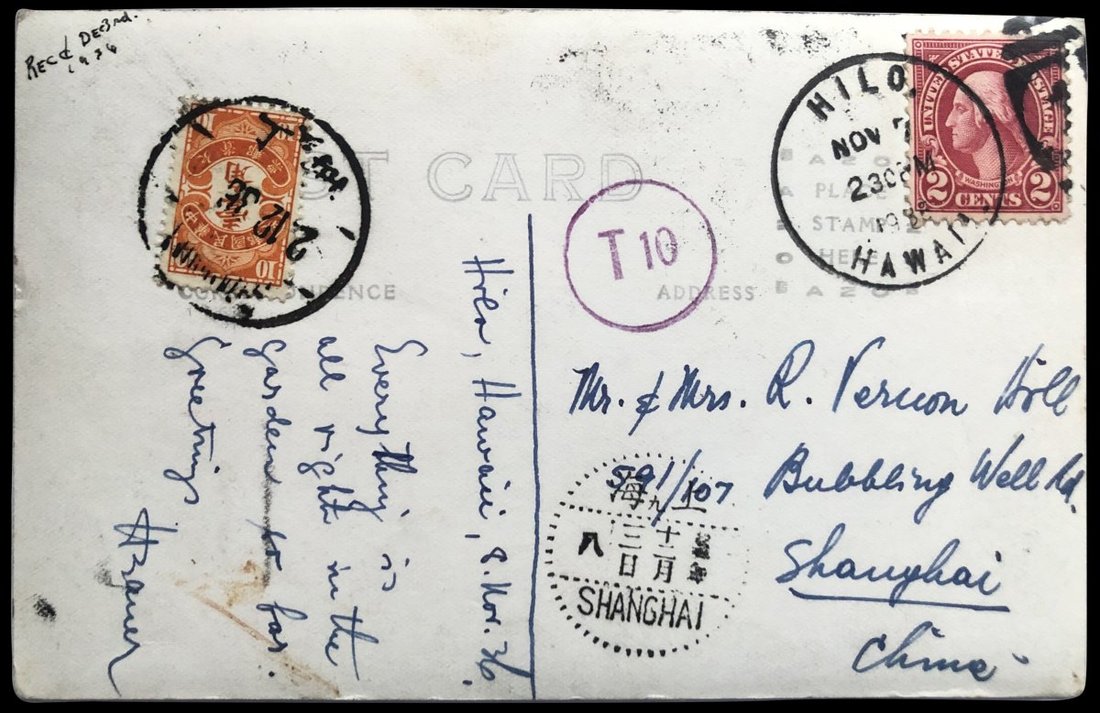 REC'd DEC 3rd.
1936
POST CARD
CORRESPONDENCE
ADDRESS
PLACE
STAMP
HERE
HILO,
NOV 7
230PM
HAWAII.
UNITED STATES POSTAGE
WASHINGTON
2 CENTS 2
T 10
2.12
36
10
Hilo, Hawaii, 8. Nov. 36.
Everything is
all right in the
garden so far.
Greetings
Mr. & Mrs. R. Vernon Doll
591/107 Bubbling Well Rd.
Shanghai
China
上海
九
十二月
三日
八
SHANGHAI